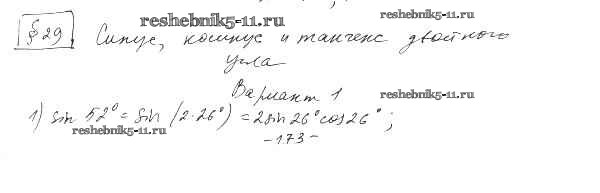 reshebnik5-11.ru
§ 29. Синус, косинус и тангенс двойного
reshebnik5-11.ru
угла
Вариант 1
reshebnik5-11.ru
1) sin 52° = sin (2·26°) = 2sin 26° cos 26°;
reshebnik5-11.ru
-173-